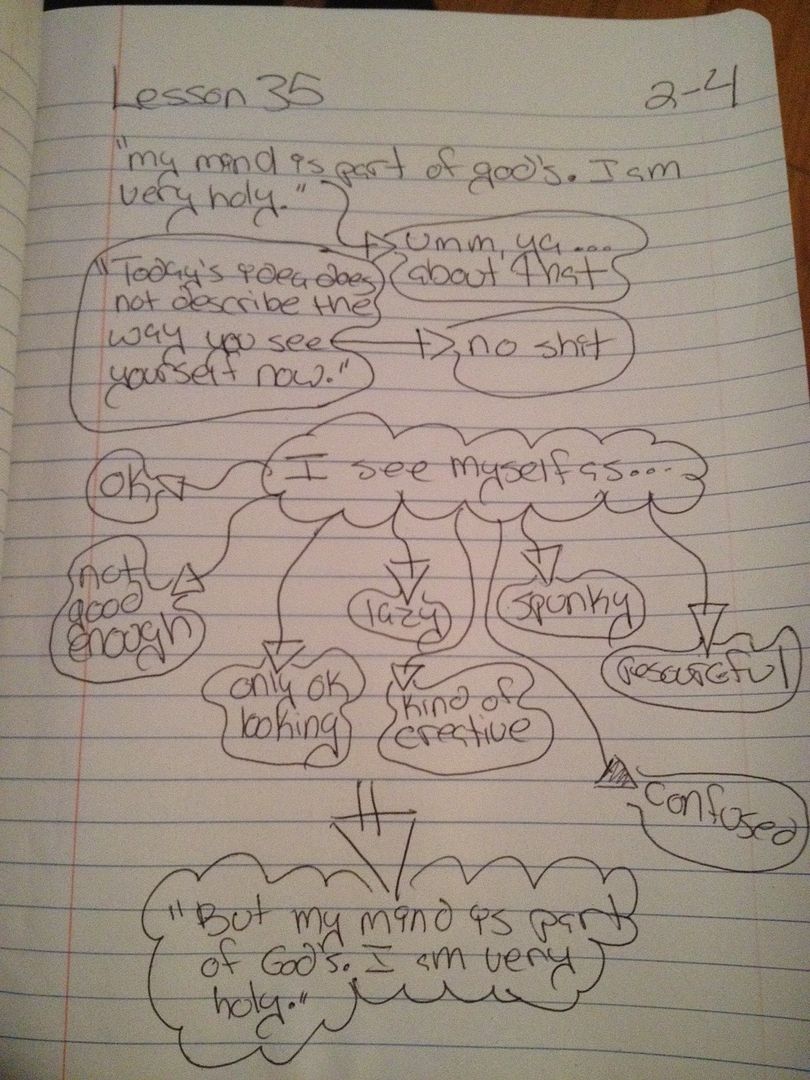 Lesson 35
2-4
"my mind is part of god's. I am
very holy."
umm, ya...
about that
"Today's idea does
not describe the
way you see
yourself now."
no shit
I see myself as....
ok
not
good
enough
only ok
looking
lazy
kind of
creative
spunky
resourceful
confused
"But my mind is part
of God's. I am very
holy."